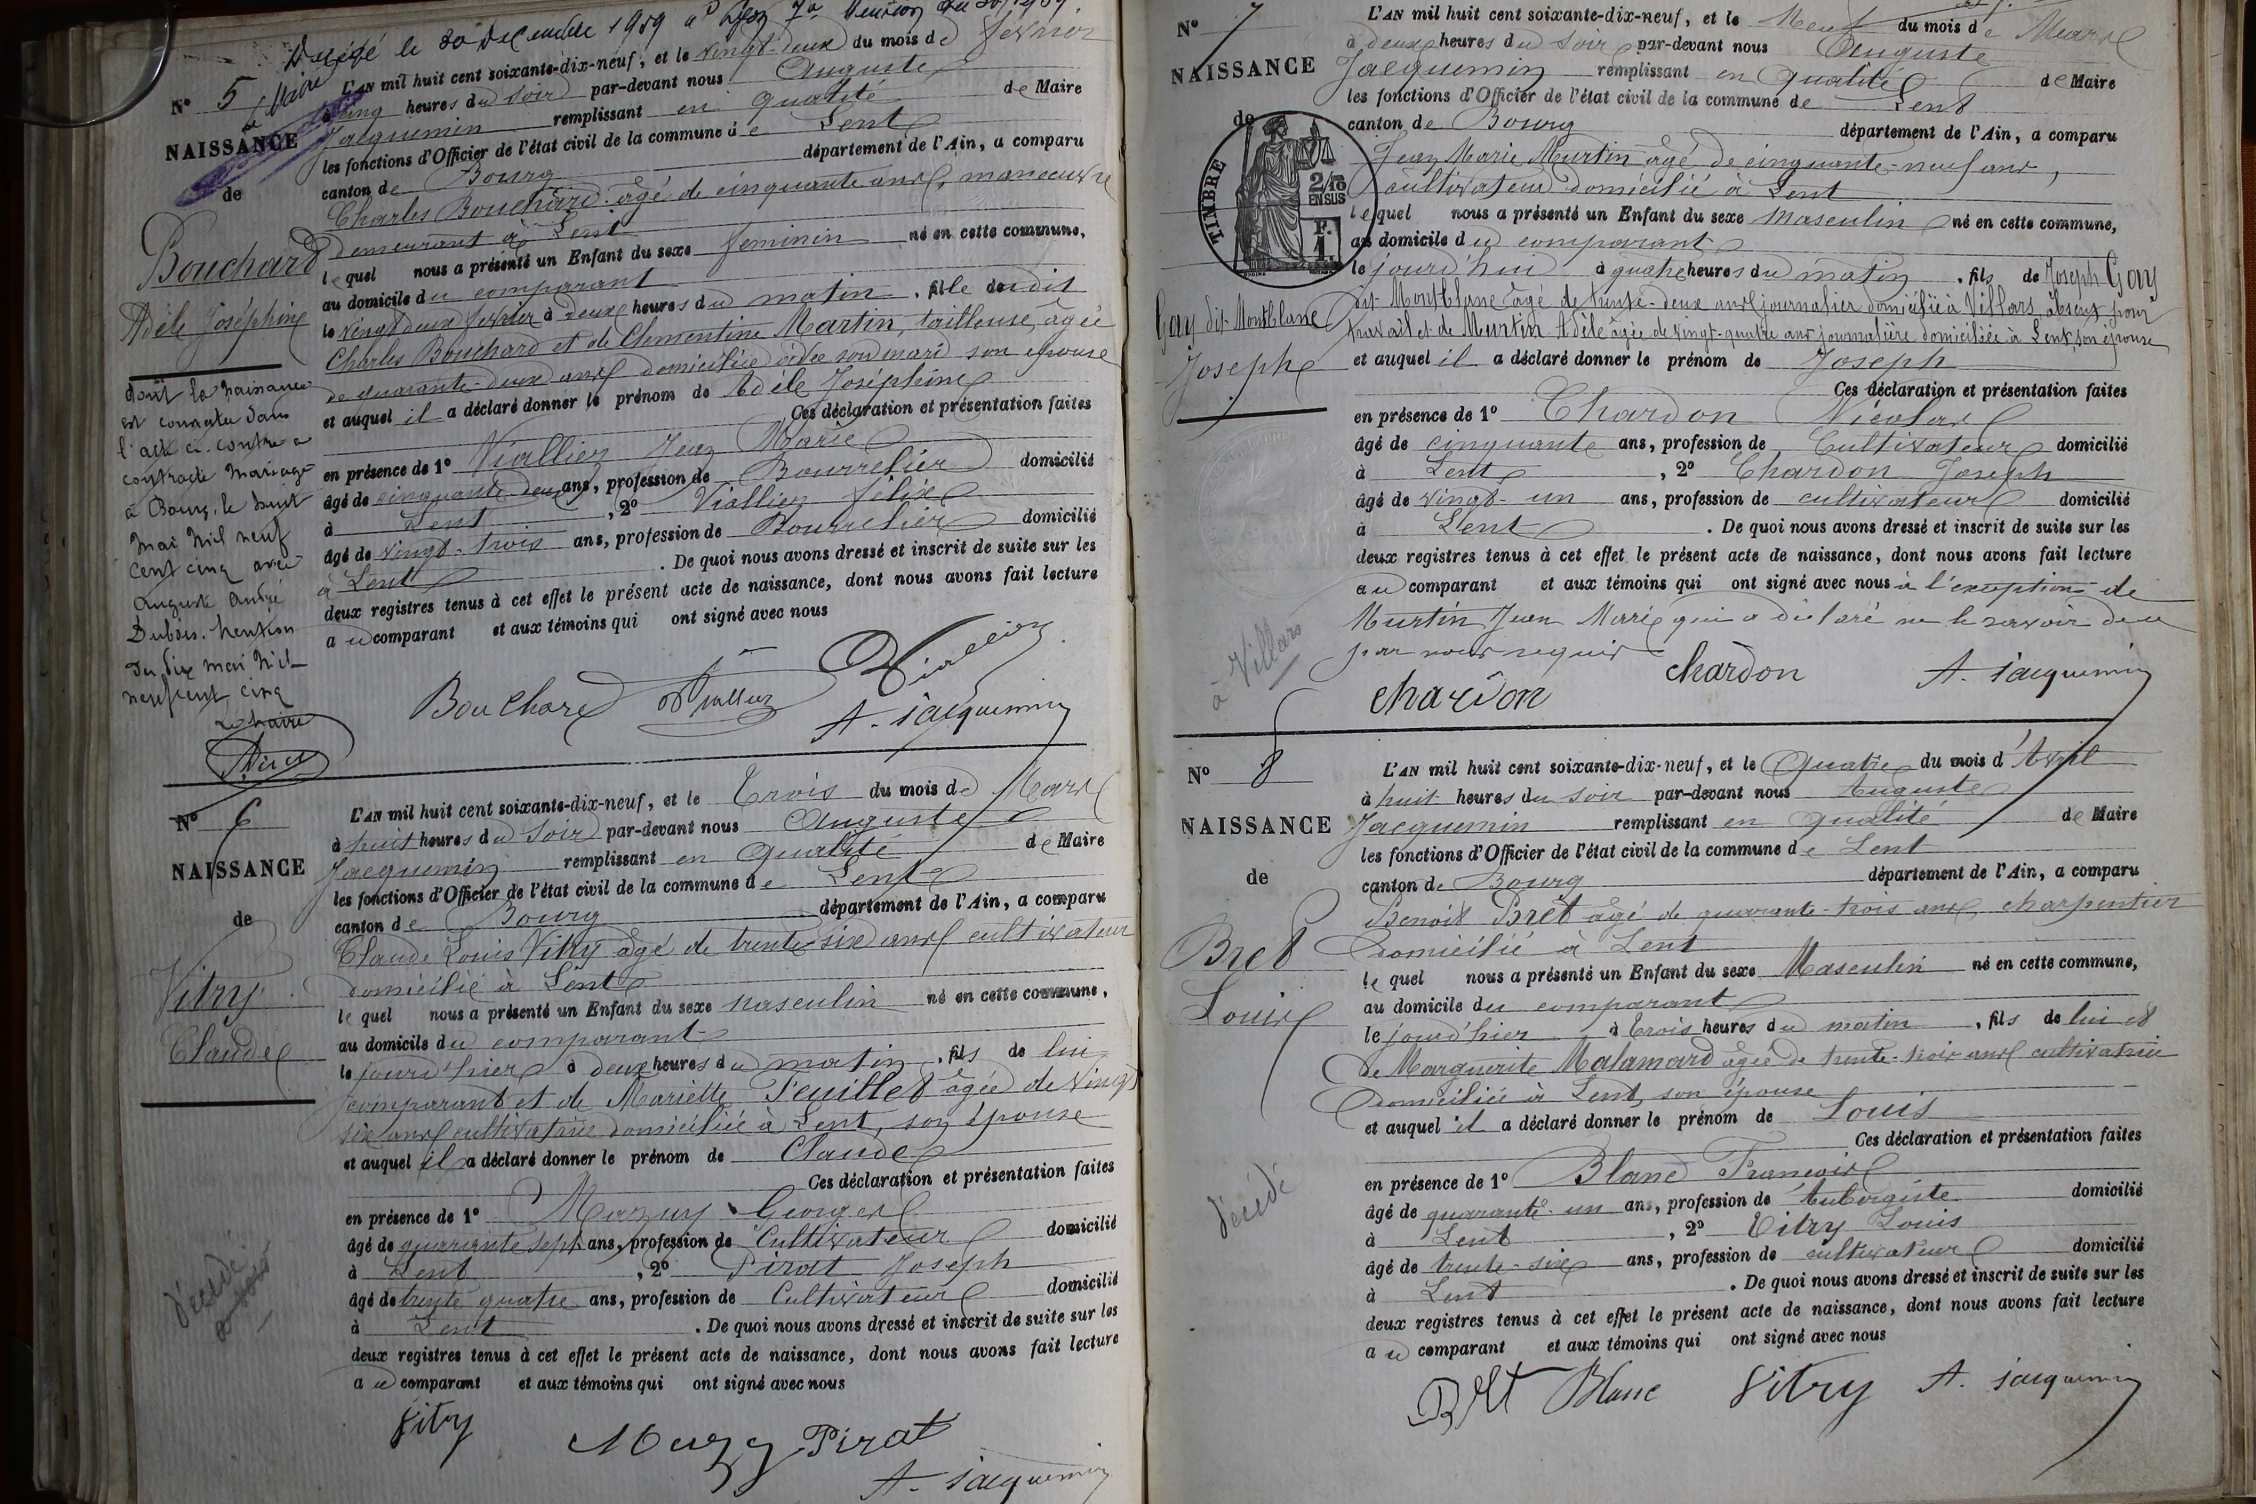 Décédé le 30 Décembre 1959
N° 5
NAISSANCE
de
Bouchard
Adèle Joséphine
dont la naissance
est constatée dans
l'acte ci-contre a
contracté mariage
à Bourg, le huit
mai mil neuf
cent cinq avec
Auguste André
Dubois. Mention
du dix mai mil
neuf cent cinq
Le Maire
L'AN mil huit cent soixante-dix-neuf, et le vingt-deux du mois de février
à cinq heures du soir par-devant nous Auguste
Jacquemin remplissant en qualité de Maire
les fonctions d'Officier de l'état civil de la commune de Lent
canton de Bourg département de l'Ain, a comparu
Charles Bouchard âgé de cinquante ans, manoeuvre
demeurant à Lent
lequel nous a présenté un Enfant du sexe féminin né en cette commune,
au domicile du comparant
le vingt deux février à deux heures du matin, fille dudit
Charles Bouchard et de Clementine Martin, tailleuse, âgée
de quarante-deux ans domiciliée avec son mari son épouse
et auquel il a déclaré donner le prénom de Adèle Joséphine
Ces déclaration et présentation faites
en présence de 1° Viallier Jean Marie
âgé de cinquante-deux ans, profession de Bourrelier domicilié
à Lent, 2° Viallier Félix
âgé de vingt-trois ans, profession de Bourrelier domicilié
à Lent. De quoi nous avons dressé et inscrit de suite sur les
deux registres tenus à cet effet le présent acte de naissance, dont nous avons fait lecture
au comparant et aux témoins qui ont signé avec nous
Bouchard Viallier Viallier
A. Jacquemin
N° 6
NAISSANCE
de
Vitry
Claude
décédé
L'AN mil huit cent soixante-dix-neuf, et le Trois du mois de Mars
à huit heures du soir par-devant nous Auguste
Jacquemin remplissant en qualité de Maire
les fonctions d'Officier de l'état civil de la commune de Lent
canton de Bourg département de l'Ain, a comparu
Claude Louis Vitry âgé de trente-six ans cultivateur
domicilié à Lent
lequel nous a présenté un Enfant du sexe masculin né en cette commune,
au domicile du comparant
le jourd'hier à deux heures du matin, fils de lui
comparant et de Mariette Feuillet âgée de vingt
six ans cultivatrice domiciliée à Lent, son épouse
et auquel il a déclaré donner le prénom de Claude
Ces déclaration et présentation faites
en présence de 1° Mazuy Georges
âgé de quarante sept ans, profession de Cultivateur domicilié
à Lent, 2° Pirat Joseph
âgé de trente quatre ans, profession de Cultivateur domicilié
à Lent. De quoi nous avons dressé et inscrit de suite sur les
deux registres tenus à cet effet le présent acte de naissance, dont nous avons fait lecture
au comparant et aux témoins qui ont signé avec nous
Vitry Mazuy Pirat
A. Jacquemin
N° 7
NAISSANCE
de
TIMBRE
2/10
EN SUS
F.
1.
Gay dit Montblanc
Joseph
à Villars
L'AN mil huit cent soixante-dix-neuf, et le Neuf du mois de Mars
à deux heures du soir par-devant nous Auguste
Jacquemin remplissant en qualité de Maire
les fonctions d'Officier de l'état civil de la commune de Lent
canton de Bourg département de l'Ain, a comparu
Jean Marie Murtin âgé de cinquante-neuf ans,
cultivateur domicilié à Lent
lequel nous a présenté un Enfant du sexe masculin né en cette commune,
au domicile du comparant
le jourd'hui à quatre heures du matin, fils de Joseph Gay
dit Montblanc âgé de trente-deux ans journalier domicilié à Villars, absent pour
travail et de Murtin Adèle âgée de vingt-quatre ans journalière domiciliée à Lent, son épouse
et auquel il a déclaré donner le prénom de Joseph
Ces déclaration et présentation faites
en présence de 1° Chardon Nicolas
âgé de cinquante ans, profession de Cultivateur domicilié
à Lent, 2° Chardon Joseph
âgé de vingt-un ans, profession de cultivateur domicilié
à Lent. De quoi nous avons dressé et inscrit de suite sur les
deux registres tenus à cet effet le présent acte de naissance, dont nous avons fait lecture
au comparant et aux témoins qui ont signé avec nous à l'exception de
Murtin Jean Marie qui a déclaré ne le savoir de ce
par nous requis
chardon chardon A. Jacquemin
N° 8
NAISSANCE
de
Bret
Louis
décédé
L'AN mil huit cent soixante-dix-neuf, et le Quatre du mois d'Avril
à huit heures du soir par-devant nous Auguste
Jacquemin remplissant en qualité de Maire
les fonctions d'Officier de l'état civil de la commune de Lent
canton de Bourg département de l'Ain, a comparu
Benoit Bret âgé de quarante-trois ans, charpentier
domicilié à Lent
lequel nous a présenté un Enfant du sexe Masculin né en cette commune,
au domicile du comparant
le jourd'hier à trois heures du matin, fils de lui et
de Marguerite Malamard âgée de trente-trois ans cultivatrice
domiciliée à Lent, son épouse
et auquel il a déclaré donner le prénom de Louis
Ces déclaration et présentation faites
en présence de 1° Blanc François
âgé de quarante-un ans, profession de Aubergiste domicilié
à Lent, 2° Vitry Louis
âgé de trente-six ans, profession de cultivateur domicilié
à Lent. De quoi nous avons dressé et inscrit de suite sur les
deux registres tenus à cet effet le présent acte de naissance, dont nous avons fait lecture
au comparant et aux témoins qui ont signé avec nous
Bret Blanc Vitry A. Jacquemin